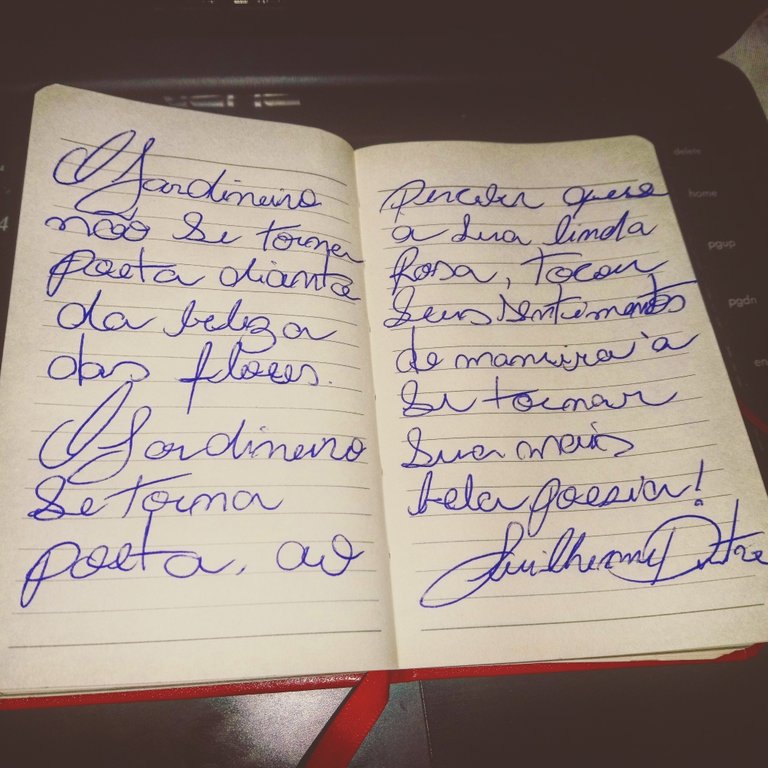 O Jardineiro
não se torna
poeta diante
da beleza
das flores.
O Jardineiro
se torna
poeta, ao
perceber que
a sua linda
Rosa, tocou
seus sentimentos
de maneira a
se tornar
sua mais
bela poesia!
Guilherme
delete
home
pgup
pgdn